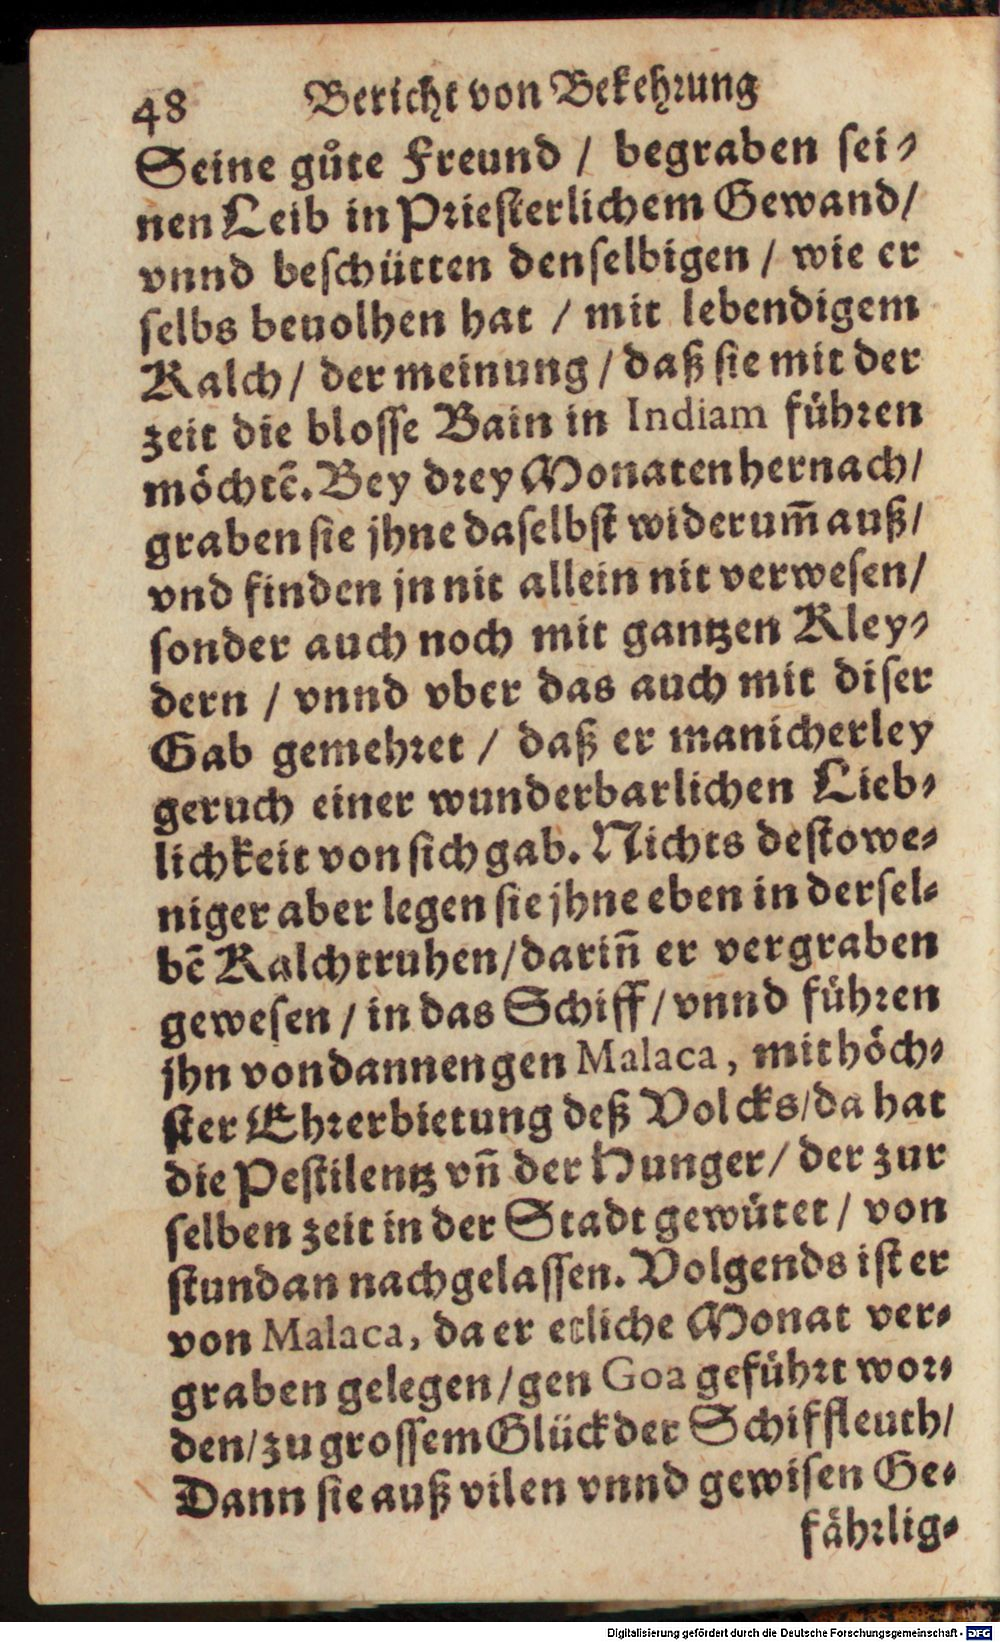 48 Bericht von Bekehrung
Seine gůte Freund / begraben sei⸗
nen Leib in Priesterlichem Gewand/
vnnd beschütten denselbigen / wie er
selbs beuolhen hat / mit lebendigem
Kalch / der meinung / daß sie mit der
zeit die blosse Bain in Indiam führen
möchtē. Bey drey Monaten hernach/
graben sie jhne daselbst widerum̄ auß/
vnd finden jn nit allein nit verwesen/
sonder auch noch mit gantzen Kley⸗
dern / vnnd vber das auch mit diser
Gab gemehret / daß er manicherley
geruch einer wunderbarlichen Lieb⸗
lichkeit von sich gab. Nichts destowe⸗
niger aber legen sie jhne eben in dersel⸗
bē Kalchtruhen / darin̄ er vergraben
gewesen / in das Schiff / vnnd führen
jhn von dannen gen Malaca, mit höch⸗
ster Ehrerbietung deß Volcks / da hat
die Pestilentz vn̄ der Hunger / der zur
selben zeit in der Stadt gewütet / von
stundan nachgelassen. Volgends ist er
von Malaca, da er etliche Monat ver⸗
graben gelegen / gen Goa geführt wor⸗
den / zu grossem Glück der Schiffleuth/
Dann sie auß vilen vnnd gewisen Ge⸗
fährlig⸗
Digitalisierung gefördert durch die Deutsche Forschungsgemeinschaft - DFG